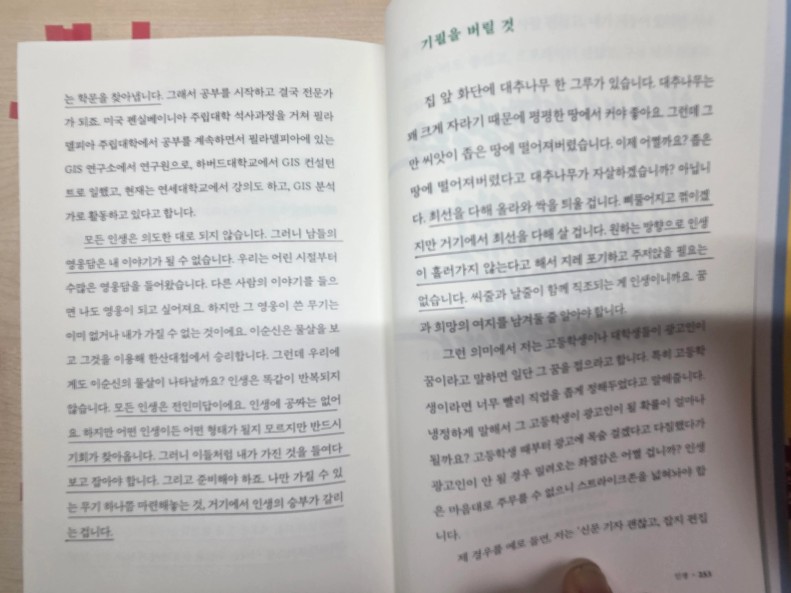 는 학문을 찾아냅니다. 그래서 공부를 시작하고 결국 전문가
가 되죠. 미국 펜실베이니아 주립대학 석사과정을 거쳐 필라
델피아 주립대학에서 공부를 계속하면서 필라델피아에 있는
GIS 연구소에서 연구원으로, 하버드대학교에서 GIS 컨설턴
트로 일했고, 현재는 연세대학교에서 강의도 하고, GIS 분석
가로 활동하고 있다고 합니다.
모든 인생은 의도한 대로 되지 않습니다. 그러니 남들의
영웅담은 내 이야기가 될 수 없습니다. 우리는 어린 시절부터
수많은 영웅담을 들어왔습니다. 다른 사람의 이야기를 들으
면 나도 영웅이 되고 싶어져요. 하지만 그 영웅이 쓴 무기는
이미 없거나 내가 가질 수 없는 것이에요. 이순신은 물살을 보
고 그것을 이용해 한산대첩에서 승리합니다. 그런데 우리에
게도 이순신의 물살이 나타날까요? 인생은 똑같이 반복되지
않습니다. 모든 인생은 전인미답이에요. 인생에 공짜는 없어
요. 하지만 어떤 인생이든 어떤 형태가 될지 모르지만 반드시
기회가 찾아옵니다. 그러니 이들처럼 내가 가진 것을 들여다
보고 잡아야 합니다. 그리고 준비해야 하죠. 나만 가질 수 있
는 무기 하나를 마련해놓는 것, 거기에서 인생의 승부가 갈리
는 겁니다.
기필을 버릴 것
집 앞 화단에 대추나무 한 그루가 있습니다. 대추나무는
꽤 크게 자라기 때문에 평평한 땅에서 커야 좋아요. 그런데 그
만 씨앗이 좁은 땅에 떨어져버렸습니다. 이제 어쩔까요? 좁은
땅에 떨어져버렸다고 대추나무가 자살하겠습니까? 아닙니
다. 최선을 다해 올라와 싹을 틔울 겁니다. 삐뚤어지고 꺾이겠
지만 거기에서 최선을 다해 살 겁니다. 원하는 방향으로 인생
이 흘러가지 않는다고 해서 지레 포기하고 주저앉을 필요는
없습니다. 씨줄과 날줄이 함께 직조되는 게 인생이니까요. 꿈
과 희망의 여지를 남겨둘 줄 알아야 합니다.
그런 의미에서 저는 고등학생이나 대학생들이 광고인이
꿈이라고 말하면 일단 그 꿈을 접으라고 합니다. 특히 고등학
생이라면 너무 빨리 직업을 좁게 정해두었다고 말해줍니다.
냉정하게 말해서 그 고등학생이 광고인이 될 확률이 얼마나
될까요? 고등학생 때부터 광고에 목숨 걸겠다고 다짐했다가
광고인이 안 될 경우 밀려오는 좌절감은 어쩔 겁니까? 인생
은 마음대로 주무를 수 없으니 스트라이크존을 넓혀놔야 합
니다.
제 경우를 예로 들면, 저는 '신문 기자 괜찮고, 잡지 편집
인생 · 233